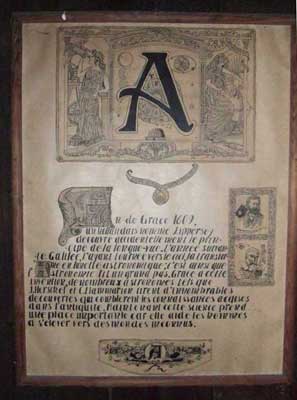 A
An de Grace 1609,
un hollandais nomme Lippersey
decouvre accidentellement le prin-
cipe de la longue-vue. L'annee suivan-
te Galilee, l'ayant tournee vers le ciel, la transfor-
me en lunette astronomique; c'est ainsi que
l'Astronomie fit un grand pas. Grace a cette
invention, de nombreux astronomes tels que
J. Herschel et C. Flammarion firent d'innombrables
decouvertes qui comblerent les connaissances acquises
dans l'antiquite. Maintenant cette science prend
une place importante car elle aide les hommes
a s'elever vers des mondes inconnus.
A